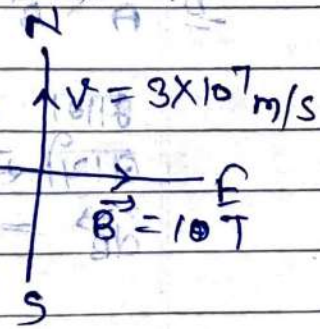 N
V = 3×10⁷ m/s
E
B⃗ = 10 T
S